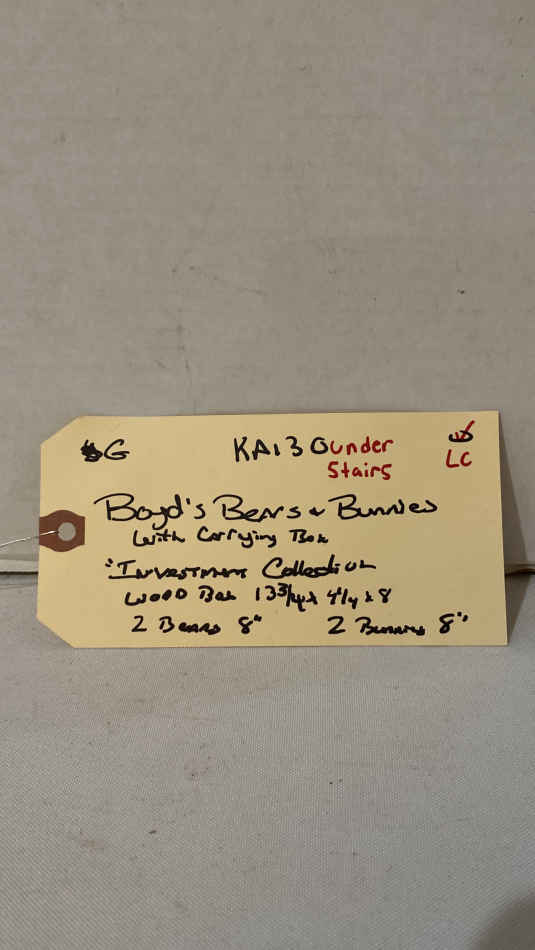 G KA130 under
Stairs LC
Boyd's Bears & Bunnies
With Carrying Box
"Investment Collection
Wood Box 13 3/4 x 4 1/4 x 8
2 Bears 8" 2 Bunnies 8"